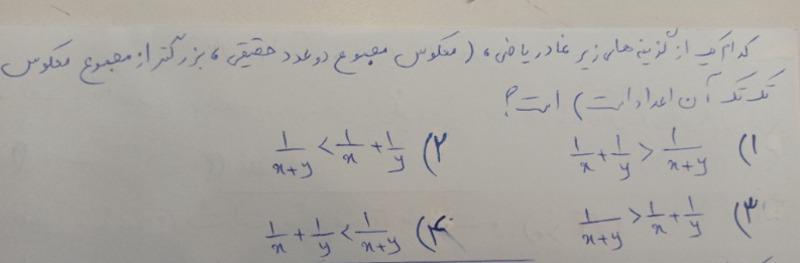 کدام یک از گزینه های زیر نماد ریاضی، (معکوس مجموع دو عدد حقیقی، بزرگتر از مجموع معکوس
تک تک آن اعداد است) است؟
۱) 1/x + 1/y > 1/(x+y)    ۲) 1/(x+y) < 1/x + 1/y
۳) 1/(x+y) > 1/x + 1/y    ۴) 1/x + 1/y < 1/(x+y)